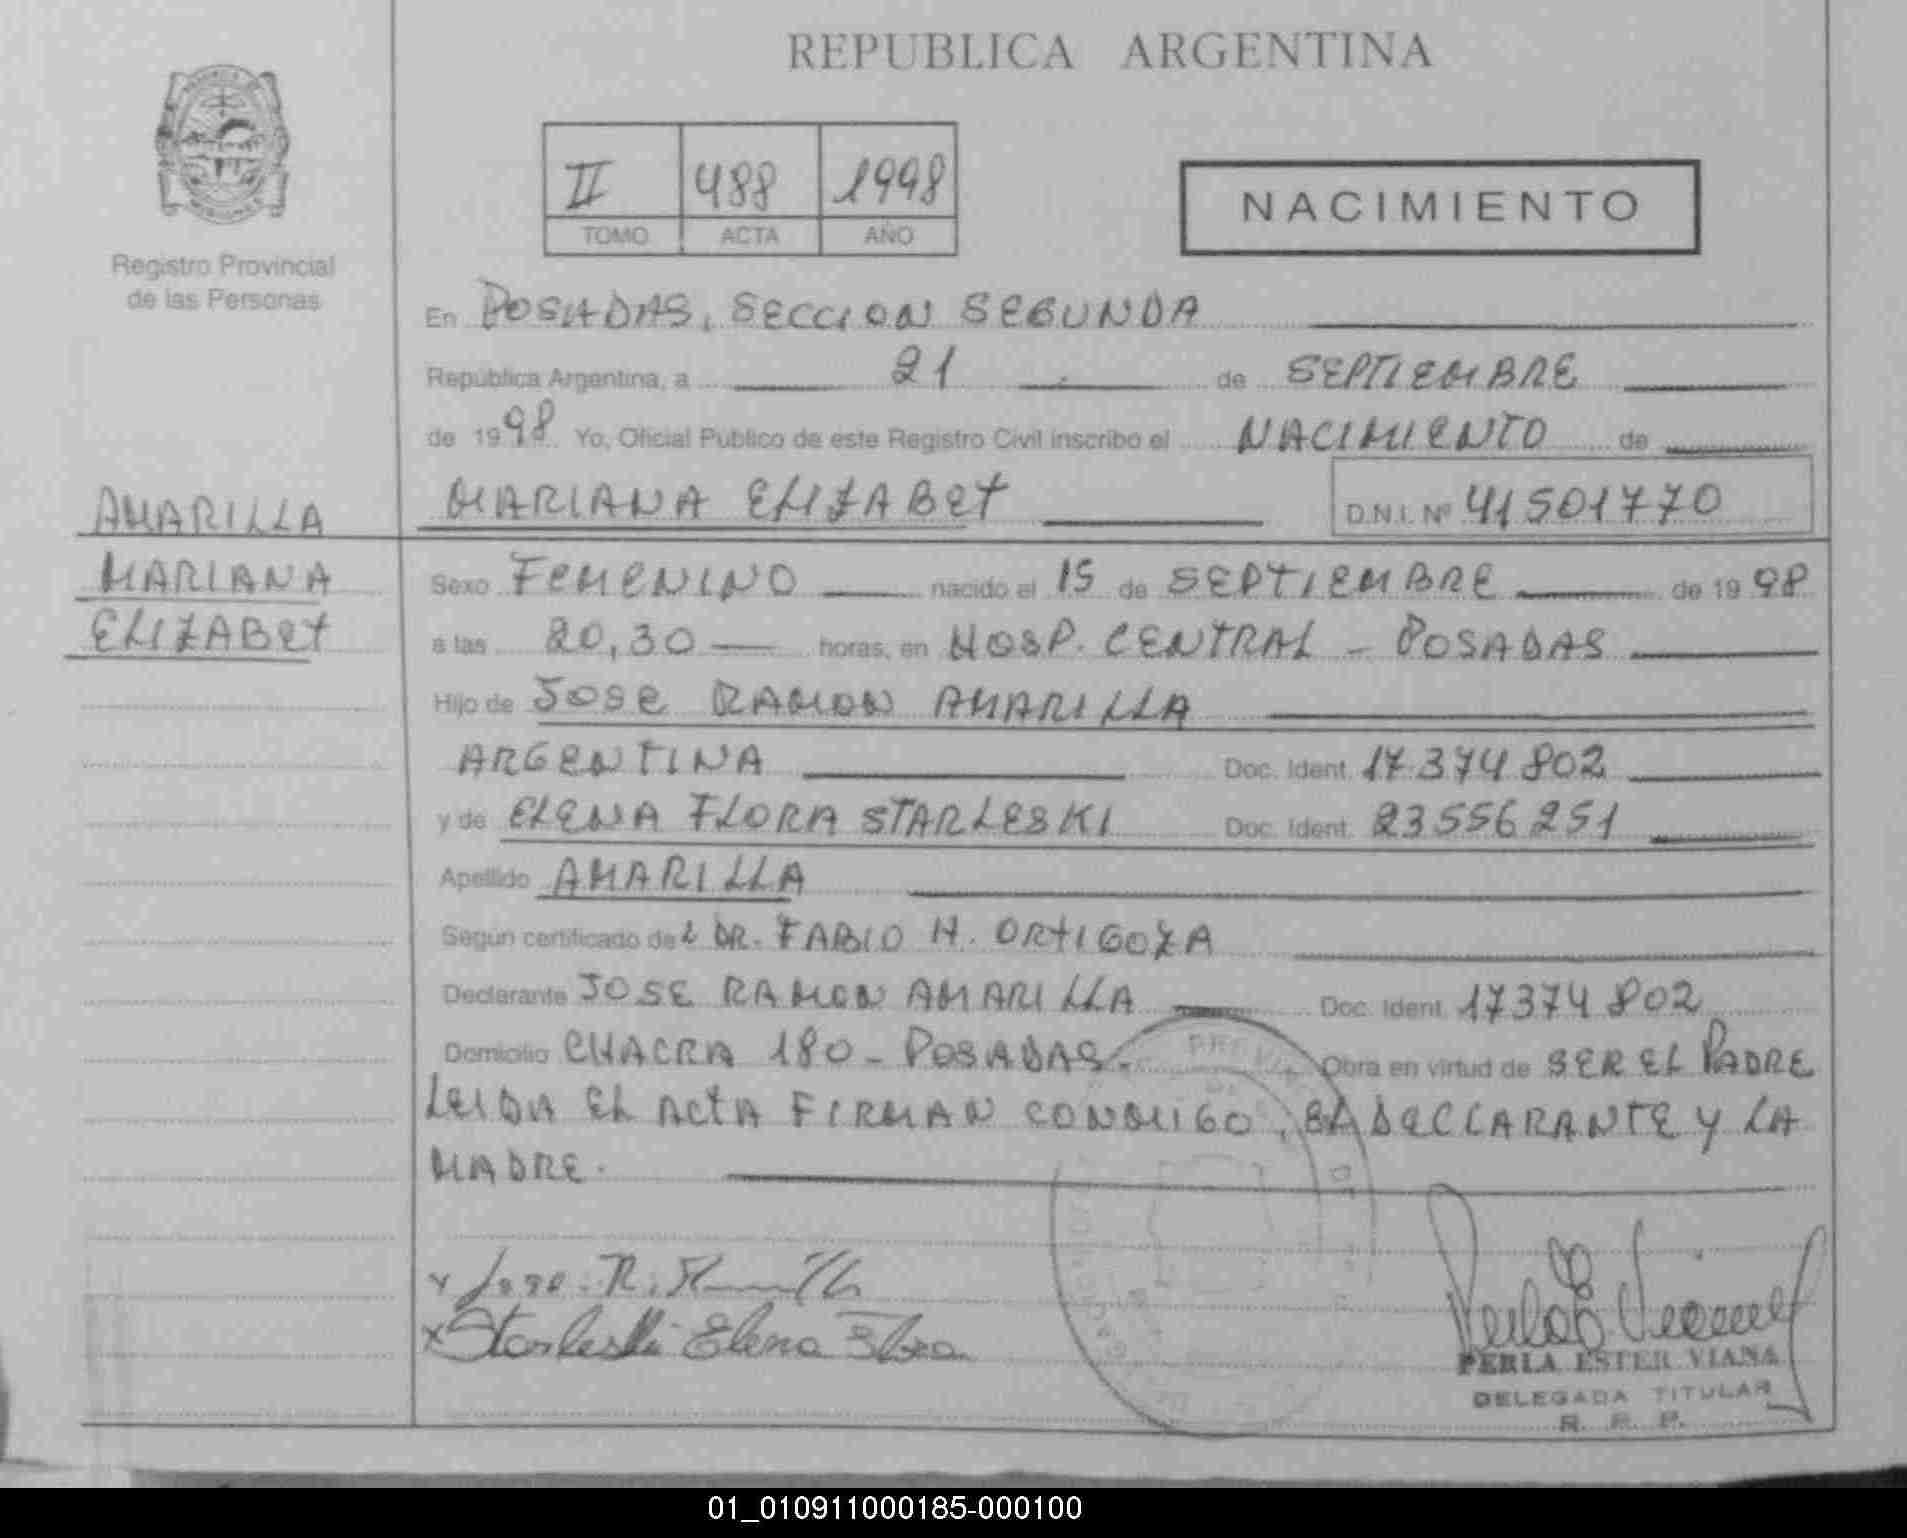 REPUBLICA ARGENTINA
II 488 1998
TOMO ACTA AÑO
NACIMIENTO
Registro Provincial
de las Personas
En POSADAS, SECCION SEGUNDA
República Argentina, a 21 de SEPTIEMBRE
de 1998 Yo, Oficial Público de este Registro Civil inscribo el NACIMIENTO de
MARIANA ELIZABET D.N.I. Nº 41501770
AMARILLA
MARIANA
ELIZABET
Sexo FEMENINO nacido el 15 de SEPTIEMBRE de 1998
a las 20,30 horas, en HOSP. CENTRAL - POSADAS
Hijo de JOSE RAMON AMARILLA
ARGENTINA Doc. Ident. 17.374.802
y de ELENA FLORA STARLESKI Doc. Ident. 23556251
Apellido AMARILLA
Según certificado del DR. FABIO H. ORTIGOZA
Declarante JOSE RAMON AMARILLA Doc. Ident. 17374802
Domicilio CHACRA 180 - POSADAS - Obra en virtud de SER EL PADRE
LEIDA EL ACTA FIRMAN CONMIGO, EL DECLARANTE Y LA
MADRE.
x Jose. R.
x Starleski Elena Flora
PERLA ESTER VIANA
DELEGADA TITULAR
R. P. P.
01_010911000185-000100